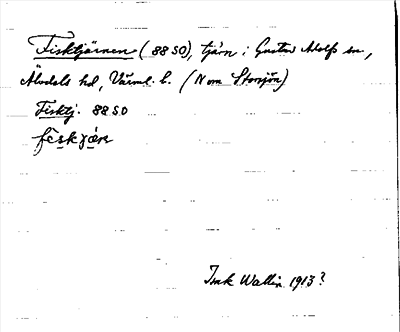 Fisktjärnen (88 SO), tjärn i Gustav Adolfs sn.,
Älvdals hd, Värml. l. (N om Storsjön)
Fisktj. 88 SO
Wallin 1913?